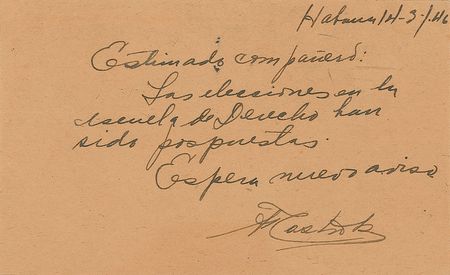 Habana 14-3-/46
Estimado compañero:
Las elecciones en la
escuela de Derecho han
sido pospuestas.
Espera nuevo aviso